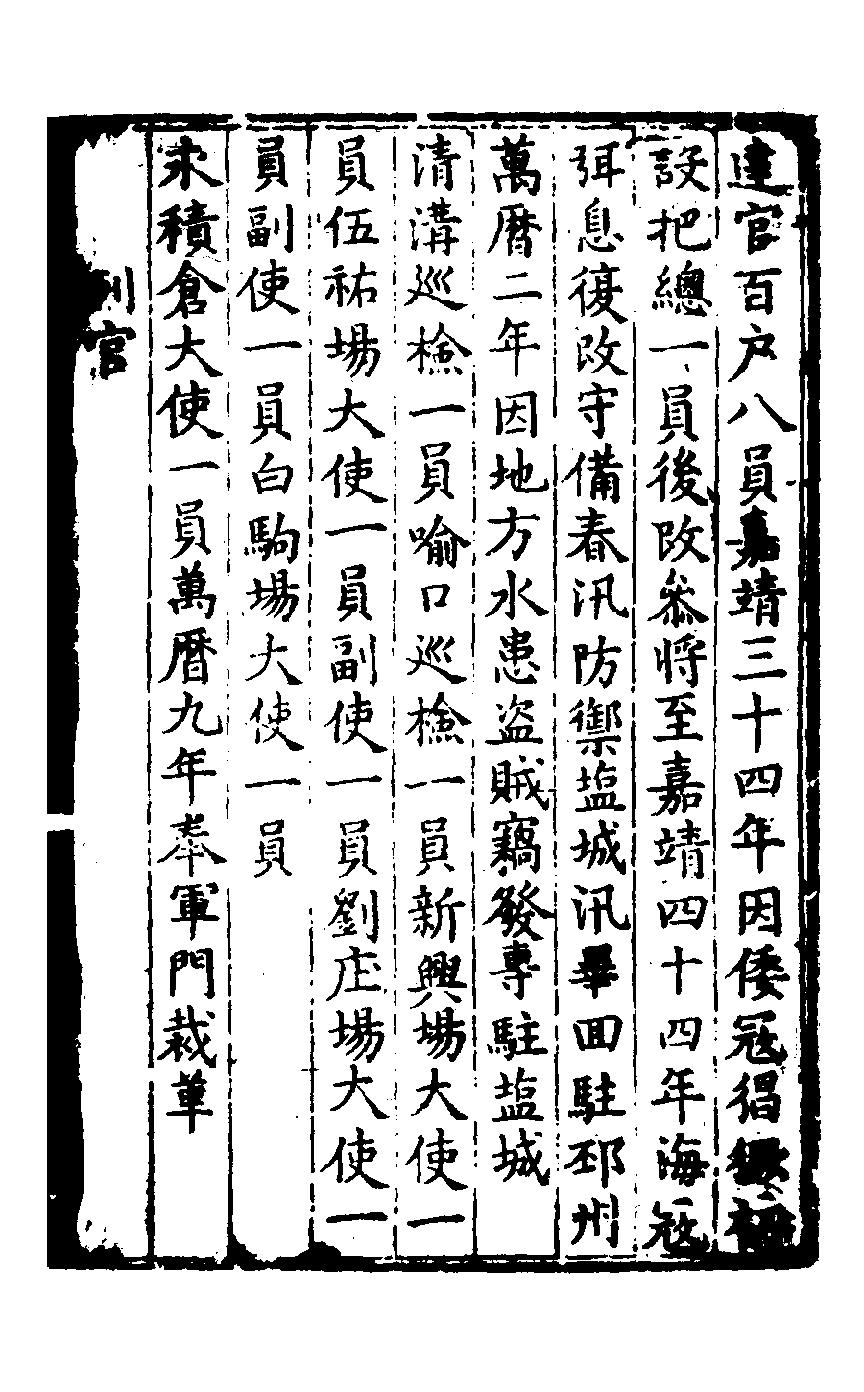 達官百户八員嘉靖三十四年因倭冦猖獗初
設把總一員後改叅將至嘉靖四十四年海冦
弭息復改守備春汛防禦塩城汛畢回駐邳州
萬曆二年因地方水患盗賊竊發專駐塩城
清溝巡檢一員喻口巡檢一員新興場大使一
員伍祐場大使一員副使一員劉庄場大使一
員副使一員白駒場大使一員
永積倉大使一員萬曆九年奉軍門裁革
列官